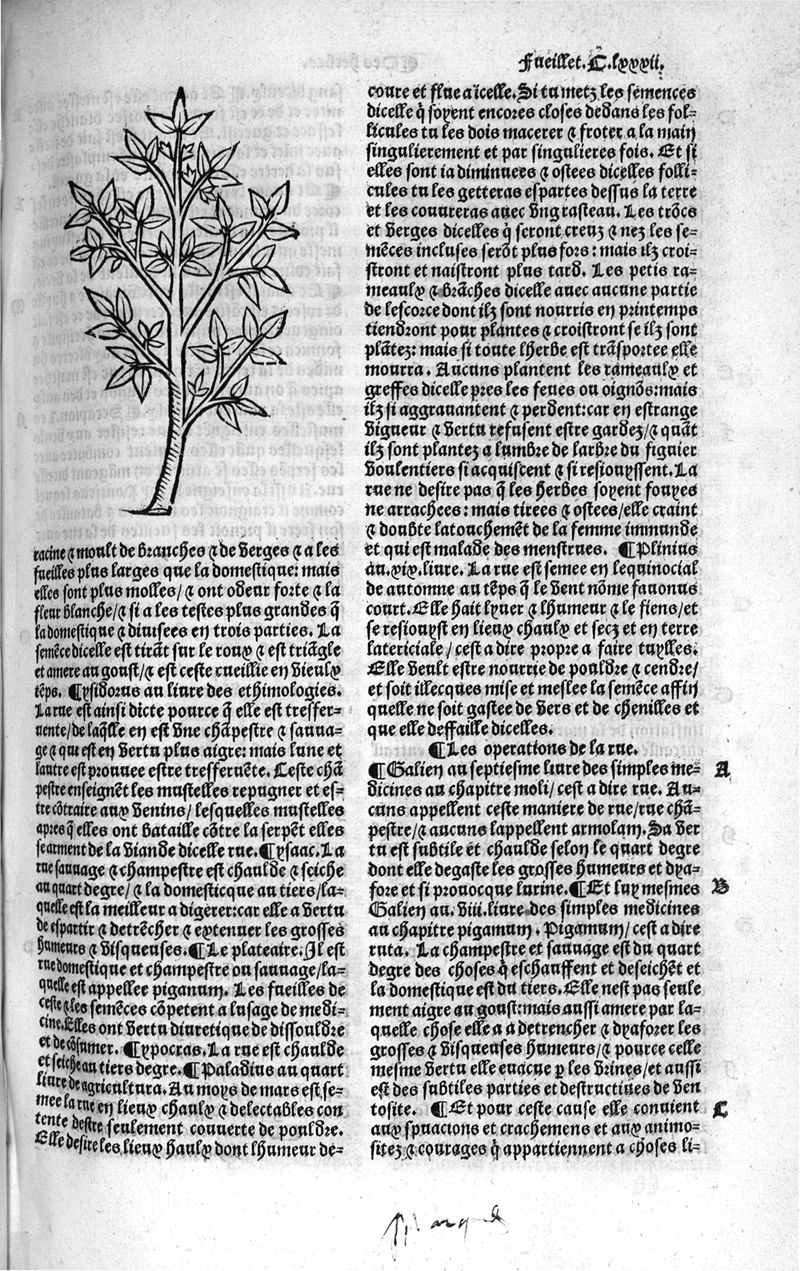 Fueillet. C. lxxxii.
racine ⁊ moult de branches ⁊ de verges ⁊ a les
fueilles plus larges que la domestique: mais
elles sont plus molles/ ⁊ ont odeur forte ⁊ la
fleur blanche/ ⁊ si a les testes plus grandes q̃
la domestique ⁊ diuisees en trois parties. La
semẽce dicelle est tirãt sur le roux ⁊ est triãgle
et amere au goust/ ⁊ est ceste cueillie en vieulx
tẽps. ¶ Ysidorus au liure des ethimologies.
La rue est ainsi dicte pource q̃ elle est tresfer-
uente/ de laq̃lle en est vne chãpestre ⁊ sauua-
ge ⁊ que est en vertu plus aigre: mais lune et
lautre est prouuee estre tresferuẽte. Ceste chã
pestre enseignẽt les mustelles repugner et es-
tre cõtraire aux venins/ lesquelles mustelles
apres q̃ elles ont bataille cõtre la serpẽt elles
se arment de la viande dicelle rue. ¶ Ysaac. La
rue sauuage ⁊ champestre est chaulde ⁊ seiche
au quart degre/ ⁊ la domesticque au tiers/ la-
quelle est la meilleur a digerer: car elle a vertu
de espartir ⁊ detrẽcher ⁊ extenuer les grosses
humeurs ⁊ visqueuses. ¶ Le plateaire. Il est
rue domestique et champestre ou sauuage/ la-
quelle est appellee piganum. Les fueilles de
ceste ⁊ les semẽces cõpetent a lusage de medi-
cine. Elles ont vertu diuretique de dissouldre
et de cõsumer. ¶ Ypocras. La rue est chaulde
et seiche au tiers degre. ¶ Paladius au quart
liure de agricultura. Au moys de mars est se-
mee la rue en lieux chaulx ⁊ delectables con
tente destre seulement couuerte de pouldre.
Elle desire les lieux haulx dont lhumeur de-
coure et flue a icelle. Si tu metz les semences
dicelle q̃ soyent encores closes dedans les fol-
licules tu les dois macerer ⁊ froter a la main
singulierement et par singulieres fois. Et si
elles sont ia diminuees ⁊ ostees dicelles folli-
cules tu les getteras espartes dessus la terre
et les couureras auec vng rasteau. Les trõcs
et verges dicelles q̃ seront creux ⁊ nez les se-
mẽces incluses serõt plus fors: mais ilz croi-
stront et naistront plus tard. Les petis ra-
meaulx ⁊ brãches dicelle auec aucune partie
de lescorce dont ilz sont nourris en printemps
tiendront pour plantes ⁊ croistront se ilz sont
plãtez: mais si toute lherbe est trãsportee elle
mourra. Aucuns plantent les rameaulx et
greffes dicelle pres les feues ou oignõs: mais
ilz si aggrauantent ⁊ perdent: car en estrange
vigueur ⁊ vertu refusent estre gardez/ ⁊ quãt
ilz sont plantez a lumbre de larbre du figuier
voulentiers si acquiscent ⁊ si resiouyssent. La
rue ne desire pas q̃ les herbes soyent fouyes
ne arrachees: mais tirees ⁊ ostees/ elle craint
⁊ doubte latouchemẽt de la femme immunde
et qui est malade des menstrues. ¶ Plinius
au. xix. liure. La rue est semee en lequinocial
de automne au tẽps q̃ le vent nõme fauonus
court. Elle hait lyuer ⁊ lhumeur ⁊ le fiens/ et
se resiouyst en lieux chaulx et secz et en terre
latericiale/ cest a dire propre a faire tuylles.
Elle veult estre nourrie de pouldre ⁊ cendre/
et soit illecques mise et meslee la semẽce affin
quelle ne soit gastee de vers et de chenilles et
que elle deffaille dicelles.
¶ Les operations de la rue.
¶ Galien au septiesme liure des simples me- A
dicines au chapitre moli/ cest a dire rue. Au-
cuns appellent ceste maniere de rue/ rue chã-
pestre/ ⁊ aucuns lappellent armolam. Sa ver
tu est subtile et chaulde selon le quart degre
dont elle degaste les grosses humeurs et dya-
fore et si prouocque lurine. ¶ Et luy mesmes B
Galien au. viii. liure des simples medicines
au chapitre pigamum. Pigamum/ cest a dire
ruta. La champestre et sauuage est du quart
degre des choses q̃ eschauffent et deseichẽt et
la domestique est du tiers. Elle nest pas seule
ment aigre au goust: mais aussi amere par la-
quelle chose elle a a detrencher ⁊ dyaforer les
grosses ⁊ visqueuses humeurs/ ⁊ pource celle
mesme vertu elle euacue p̱ les vrines/ et aussi
est des subtiles parties et destructiues de ven
tosite. ¶ Et pour ceste cause elle conuient C
aux spuacions et crachemens et aux animo-
sitez ⁊ courages q̃ appartiennent a choses li-